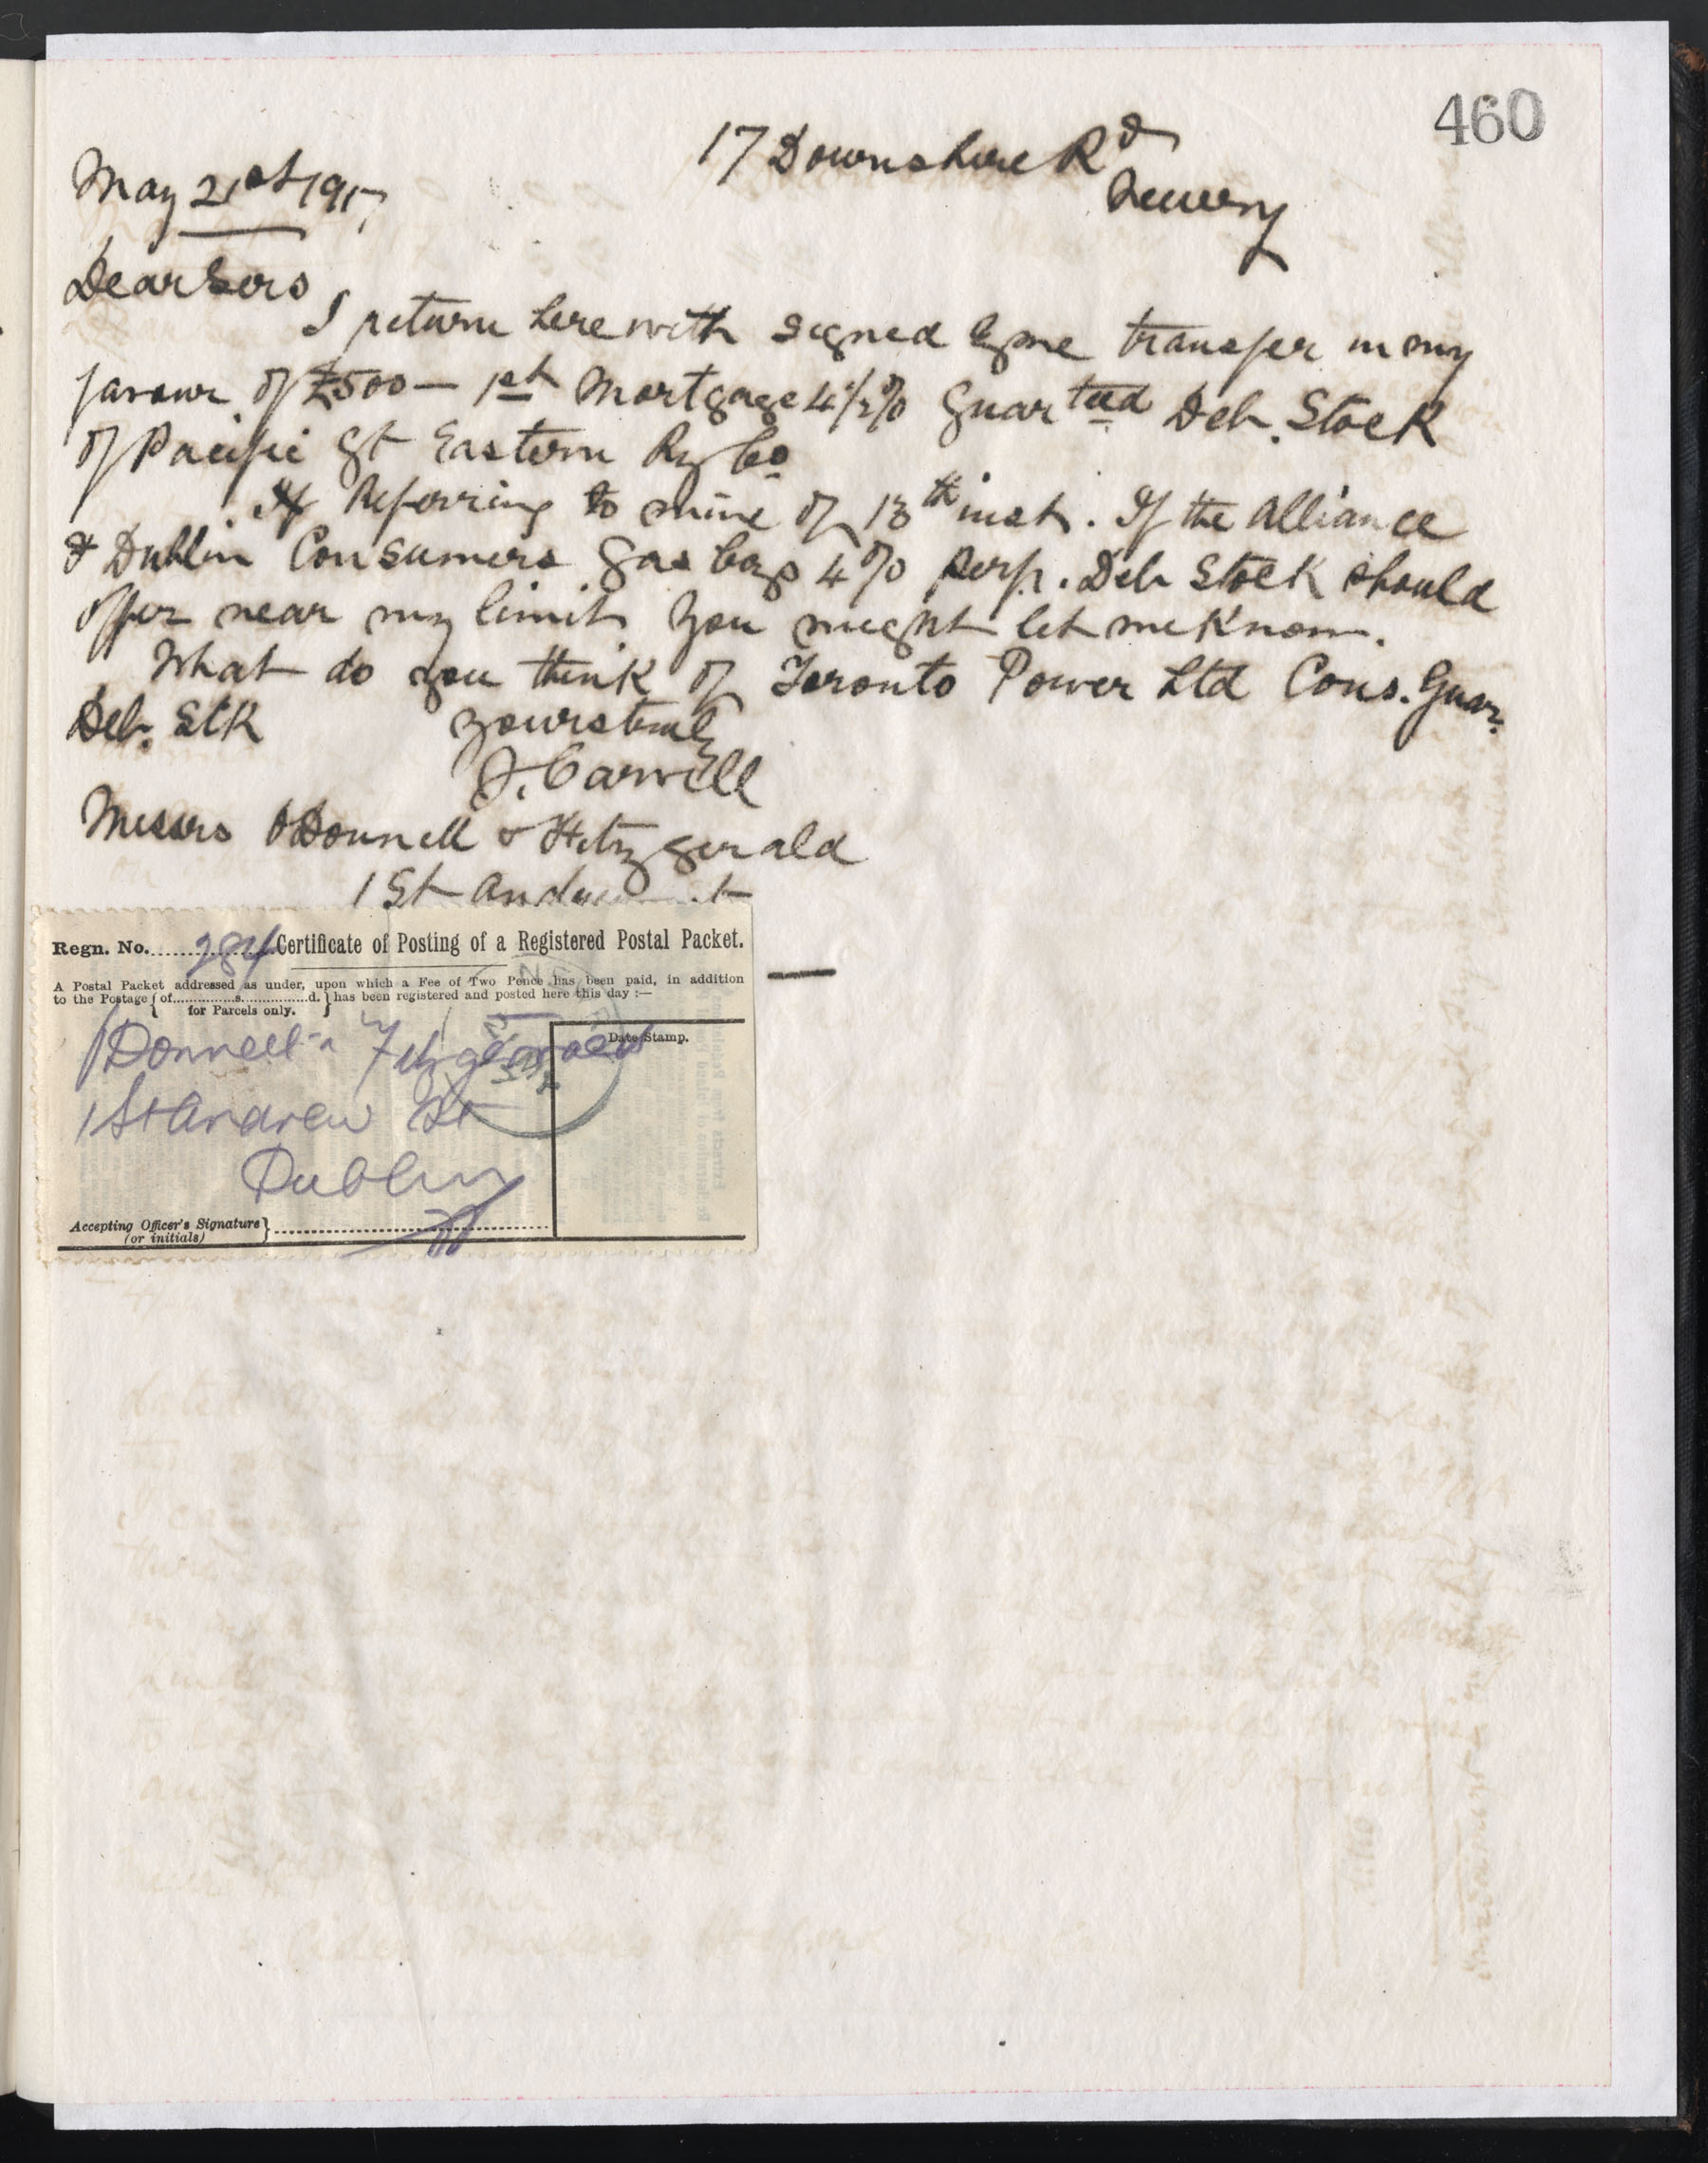 460
17 Downshire Rd
Newry
May 21st 1917
Dear Sirs
I return herewith signed by me transfer in my
favour of £500 — 1st Mortgage 4½% Guarteed Deb. Stock
of Pacific Gt Eastern Ry Co
Referring to mine of 18th inst. If the Alliance
& Dublin Consumers Gas Coys 4% perp. Deb Stock should
offer near my limit you might let me know.
What do you think of Toronto Power Ltd Cons. Guar.
Deb. Stk
Yours truly
J. Carvill
Messrs O'Donnell & Fitzgerald
1 St
Regn. No. 284 Certificate of Posting of a Registered Postal Packet.
A Postal Packet addressed as under, upon which a Fee of Two Pence has been paid, in addition
to the Postage { of............s...............d. } has been registered and posted here this day :—
for Parcels only.
Date Stamp.
O'Donnell & Fitzgerald
1 St Andrew St
Dublin
Accepting Officer's Signature }
(or initials)